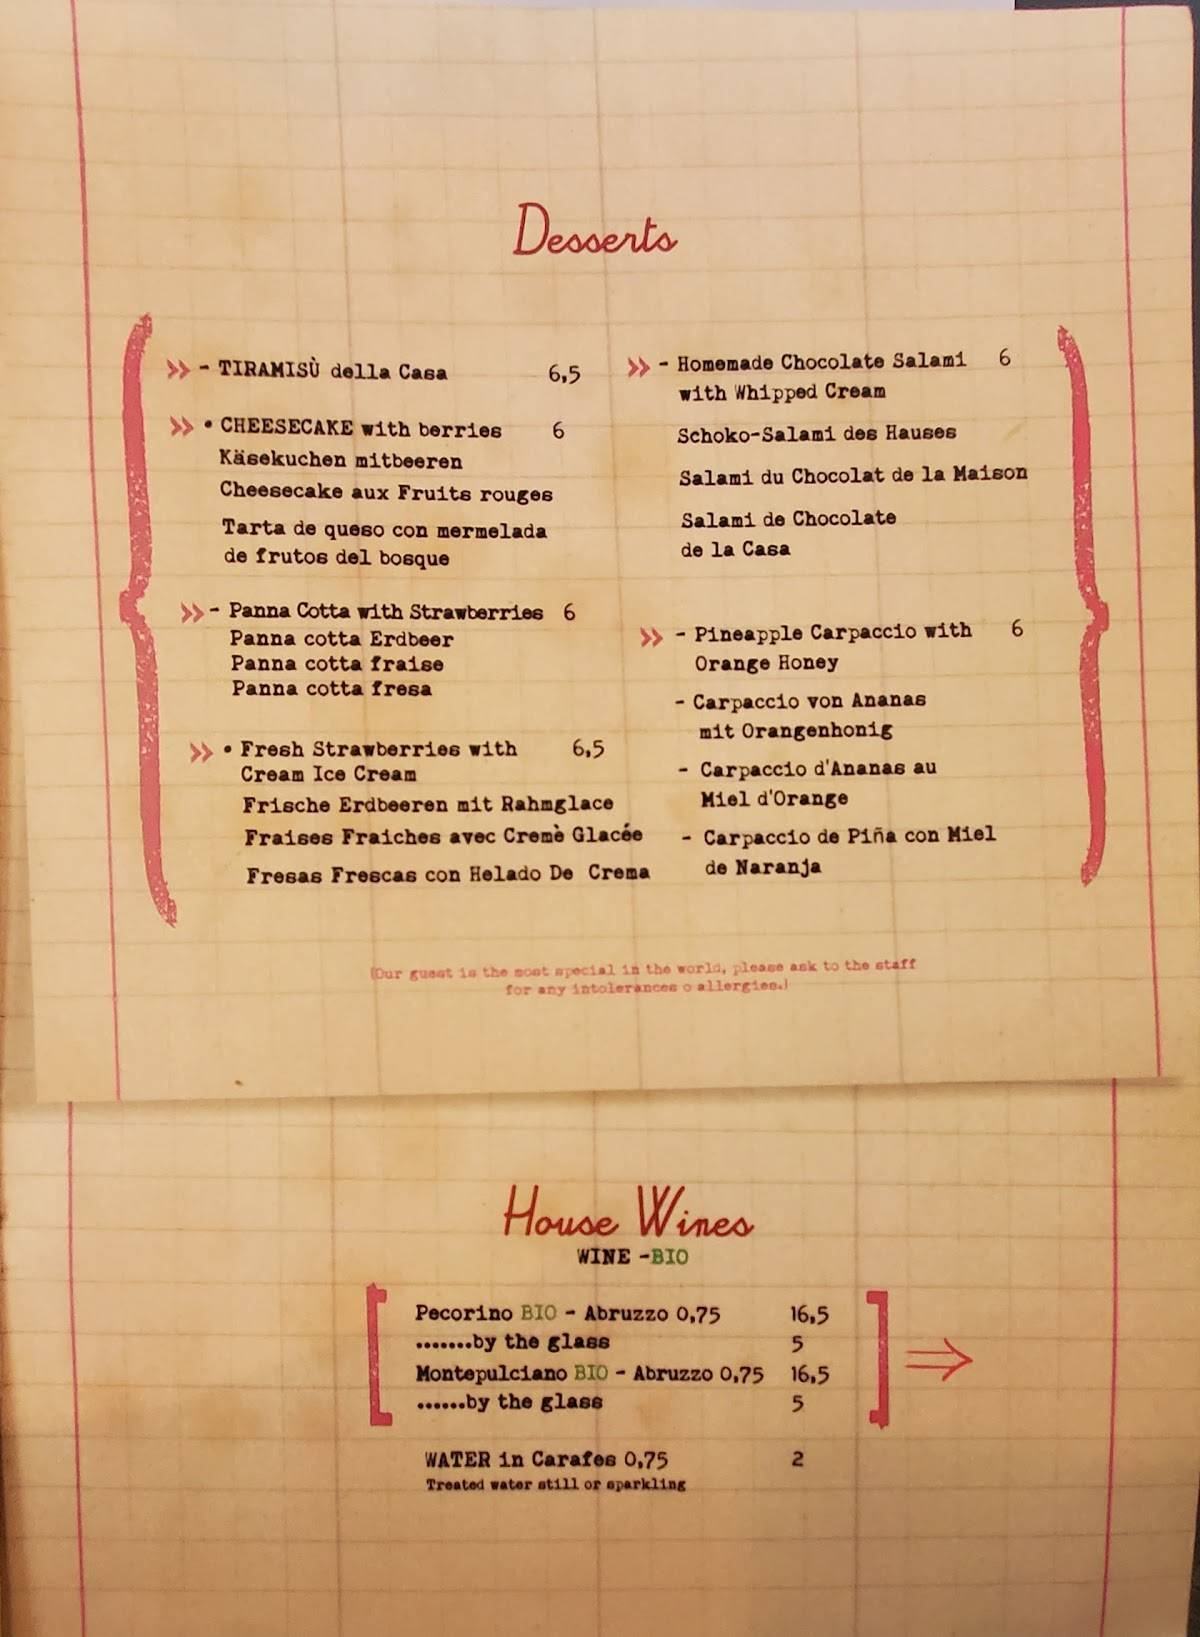 Desserts
- TIRAMISÙ della Casa 6,5
• CHEESECAKE with berries 6
Käsekuchen mitbeeren
Cheesecake aux Fruits rouges
Tarta de queso con mermelada
de frutos del bosque
- Panna Cotta with Strawberries 6
Panna cotta Erdbeer
Panna cotta fraise
Panna cotta fresa
• Fresh Strawberries with 6,5
Cream Ice Cream
Frische Erdbeeren mit Rahmglace
Fraises Fraiches avec Cremè Glacée
Fresas Frescas con Helado De Crema
- Homemade Chocolate Salami 6
with Whipped Cream
Schoko-Salami des Hauses
Salami du Chocolat de la Maison
Salami de Chocolate
de la Casa
- Pineapple Carpaccio with 6
Orange Honey
- Carpaccio von Ananas
mit Orangenhonig
- Carpaccio d'Ananas au
Miel d'Orange
- Carpaccio de Piña con Miel
de Naranja
(Our guest is the most special in the world, please ask to the staff
for any intolerances o allergies.)
House Wines
WINE -BIO
Pecorino BIO - Abruzzo 0,75 16,5
.......by the glass 5
Montepulciano BIO - Abruzzo 0,75 16,5
......by the glass 5
WATER in Carafes 0,75 2
Treated water still or sparkling